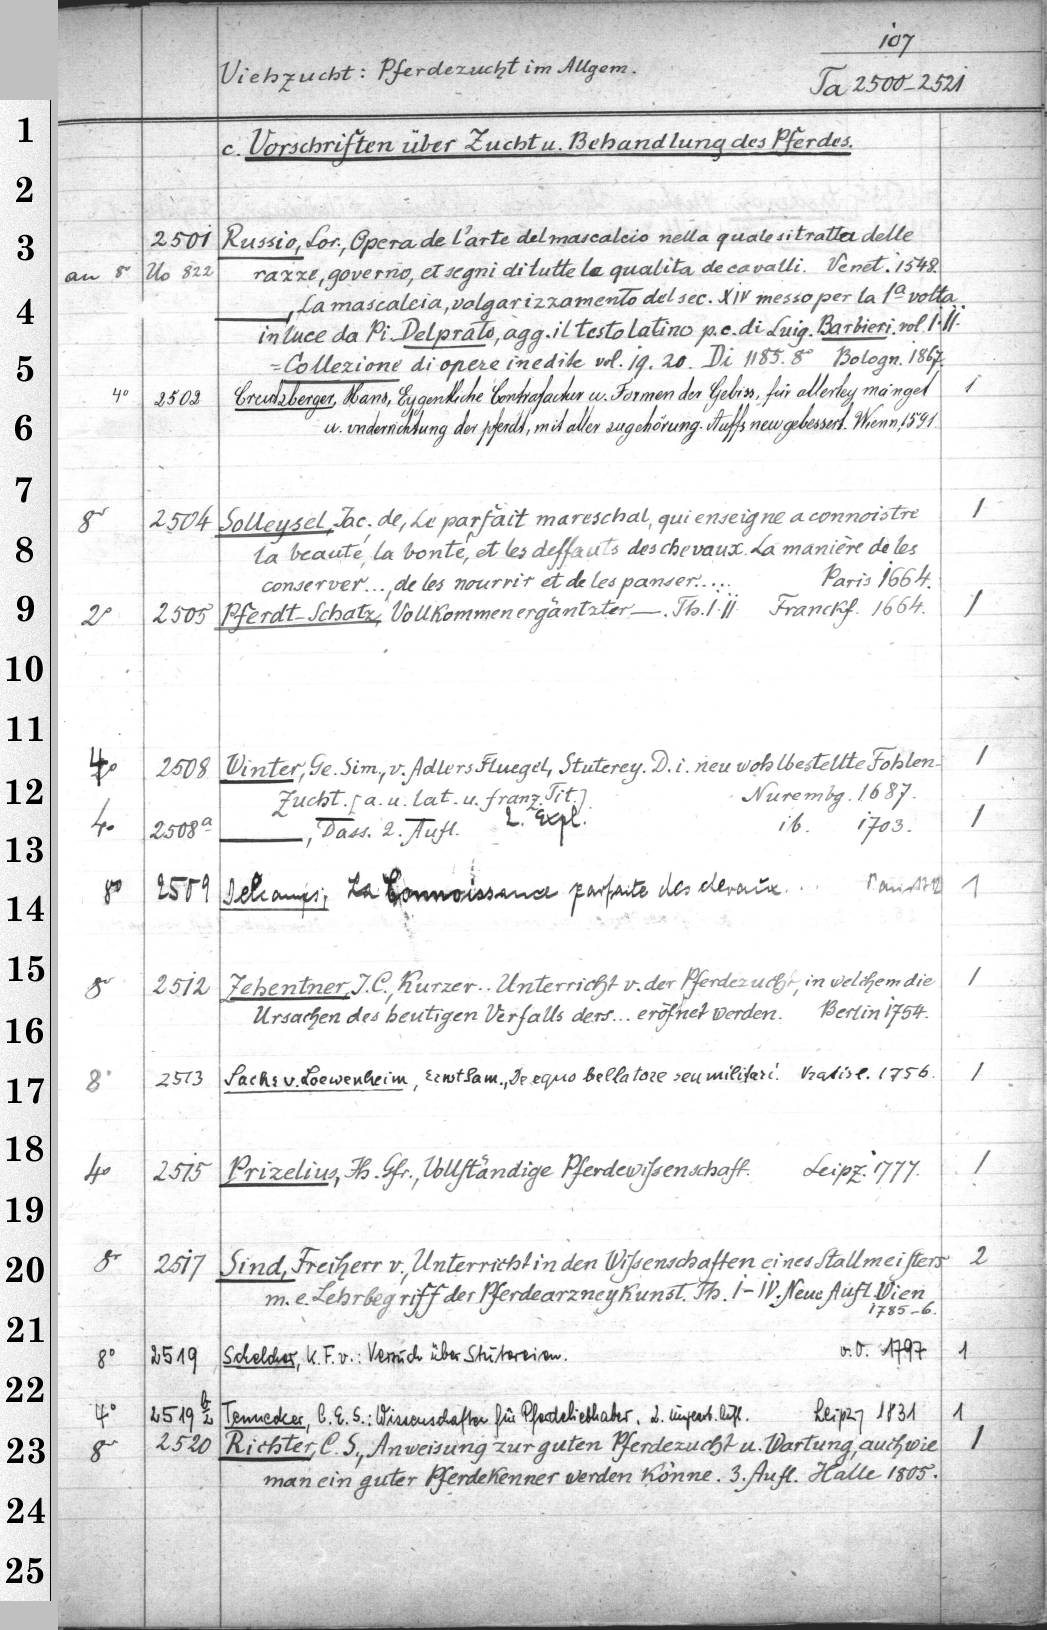 107
Viehzucht: Pferdezucht im Allgem. Ta 2500-2521
1
c. Vorschriften über Zucht u. Behandlung des Pferdes.
2
3 2501 Russio, Lor., Opera de l'arte del mascalcio nella quale si tratta delle
an 8° Uo 822 razze, governo, et segni di tutte le qualita de cavalli. Venet. 1548.
4 ——, La mascalcia, volgarizzamento del sec. XIV messo per la 1a volta
in luce da Pi. Delprato, agg. il testo latino p. c. di Luig. Barbieri. vol I.II.
5 = Collezione di opere inedite vol. 19. 20. Di 1185. 8° Bologn. 1867.
4° 2502 Creutzberger, Hans, Eygentliche Contrafactur u. Formen der Gebiss, für allerley mängel 1
6 u. underrichtung der pferdt, mit aller zugehörung. Auffs new gebessert. Wienn, 1591
7
8° 2504 Solleysel, Jac. de, Le parfait mareschal, qui enseigne a connoistre 1
8 la beauté, la bonté, et les deffauts des chevaux. La manière de les
conserver..., de les nourrir et de les panser.... Paris 1664.
9 2° 2505 Pferdt-Schatz, Vollkommen ergäntzter —. Th. I.II Franckf. 1664. 1
10
11
4° 2508 Winter, Ge. Sim., v. Adlers Fluegel, Stuterey. D. i. neu wohlbestellte Fohlen- 1
12 Zucht. [a. u. lat. u. franz. Tit.] Nurembg. 1687.
4° 2508a ——, Dass. 2. Aufl. 2. Expl. ib. 1703. 1
13
8° 2509 La Connoissance parfaite des chevaux... 1
14
15
8° 2512 Zehentner, J. C., Kurzer.. Unterricht v. der Pferdezucht, in welchem die 1
16 Ursachen des heutigen Verfalls ders... eröfnet werden. Berlin 1754.
17 8° 2513 Sachs v. Loewenheim, Ernst Sam., De equo bellatore seu militari. Vratisl. 1756. 1
18
4° 2515 Prizelius, Jh. Gfr., Vollständige Pferdewißenschaft. Leipz. 1777. 1
19
20 8° 2517 Sind, Freiherr v., Unterricht in den Wißenschaften eines Stallmeisters 2
m. e. Lehrbegriff der Pferdearzneykunst. Th. I-IV. Neue Aufl. Wien
1785-6.
21
8° 2519 K. F. v.: Versuch über Stutereien. o. O. 1797 1
22
4° 2519 Tennecker, C. E. S.: Wissenschaften für Pferdeliebhaber. 2. umgearb. Aufl. Leipzig 1831 1
23 8° 2520 Richter, C. S., Anweisung zur guten Pferdezucht u. Wartung, auch wie 1
man ein guter Pferdekenner werden könne. 3. Aufl. Halle 1805.
24
25